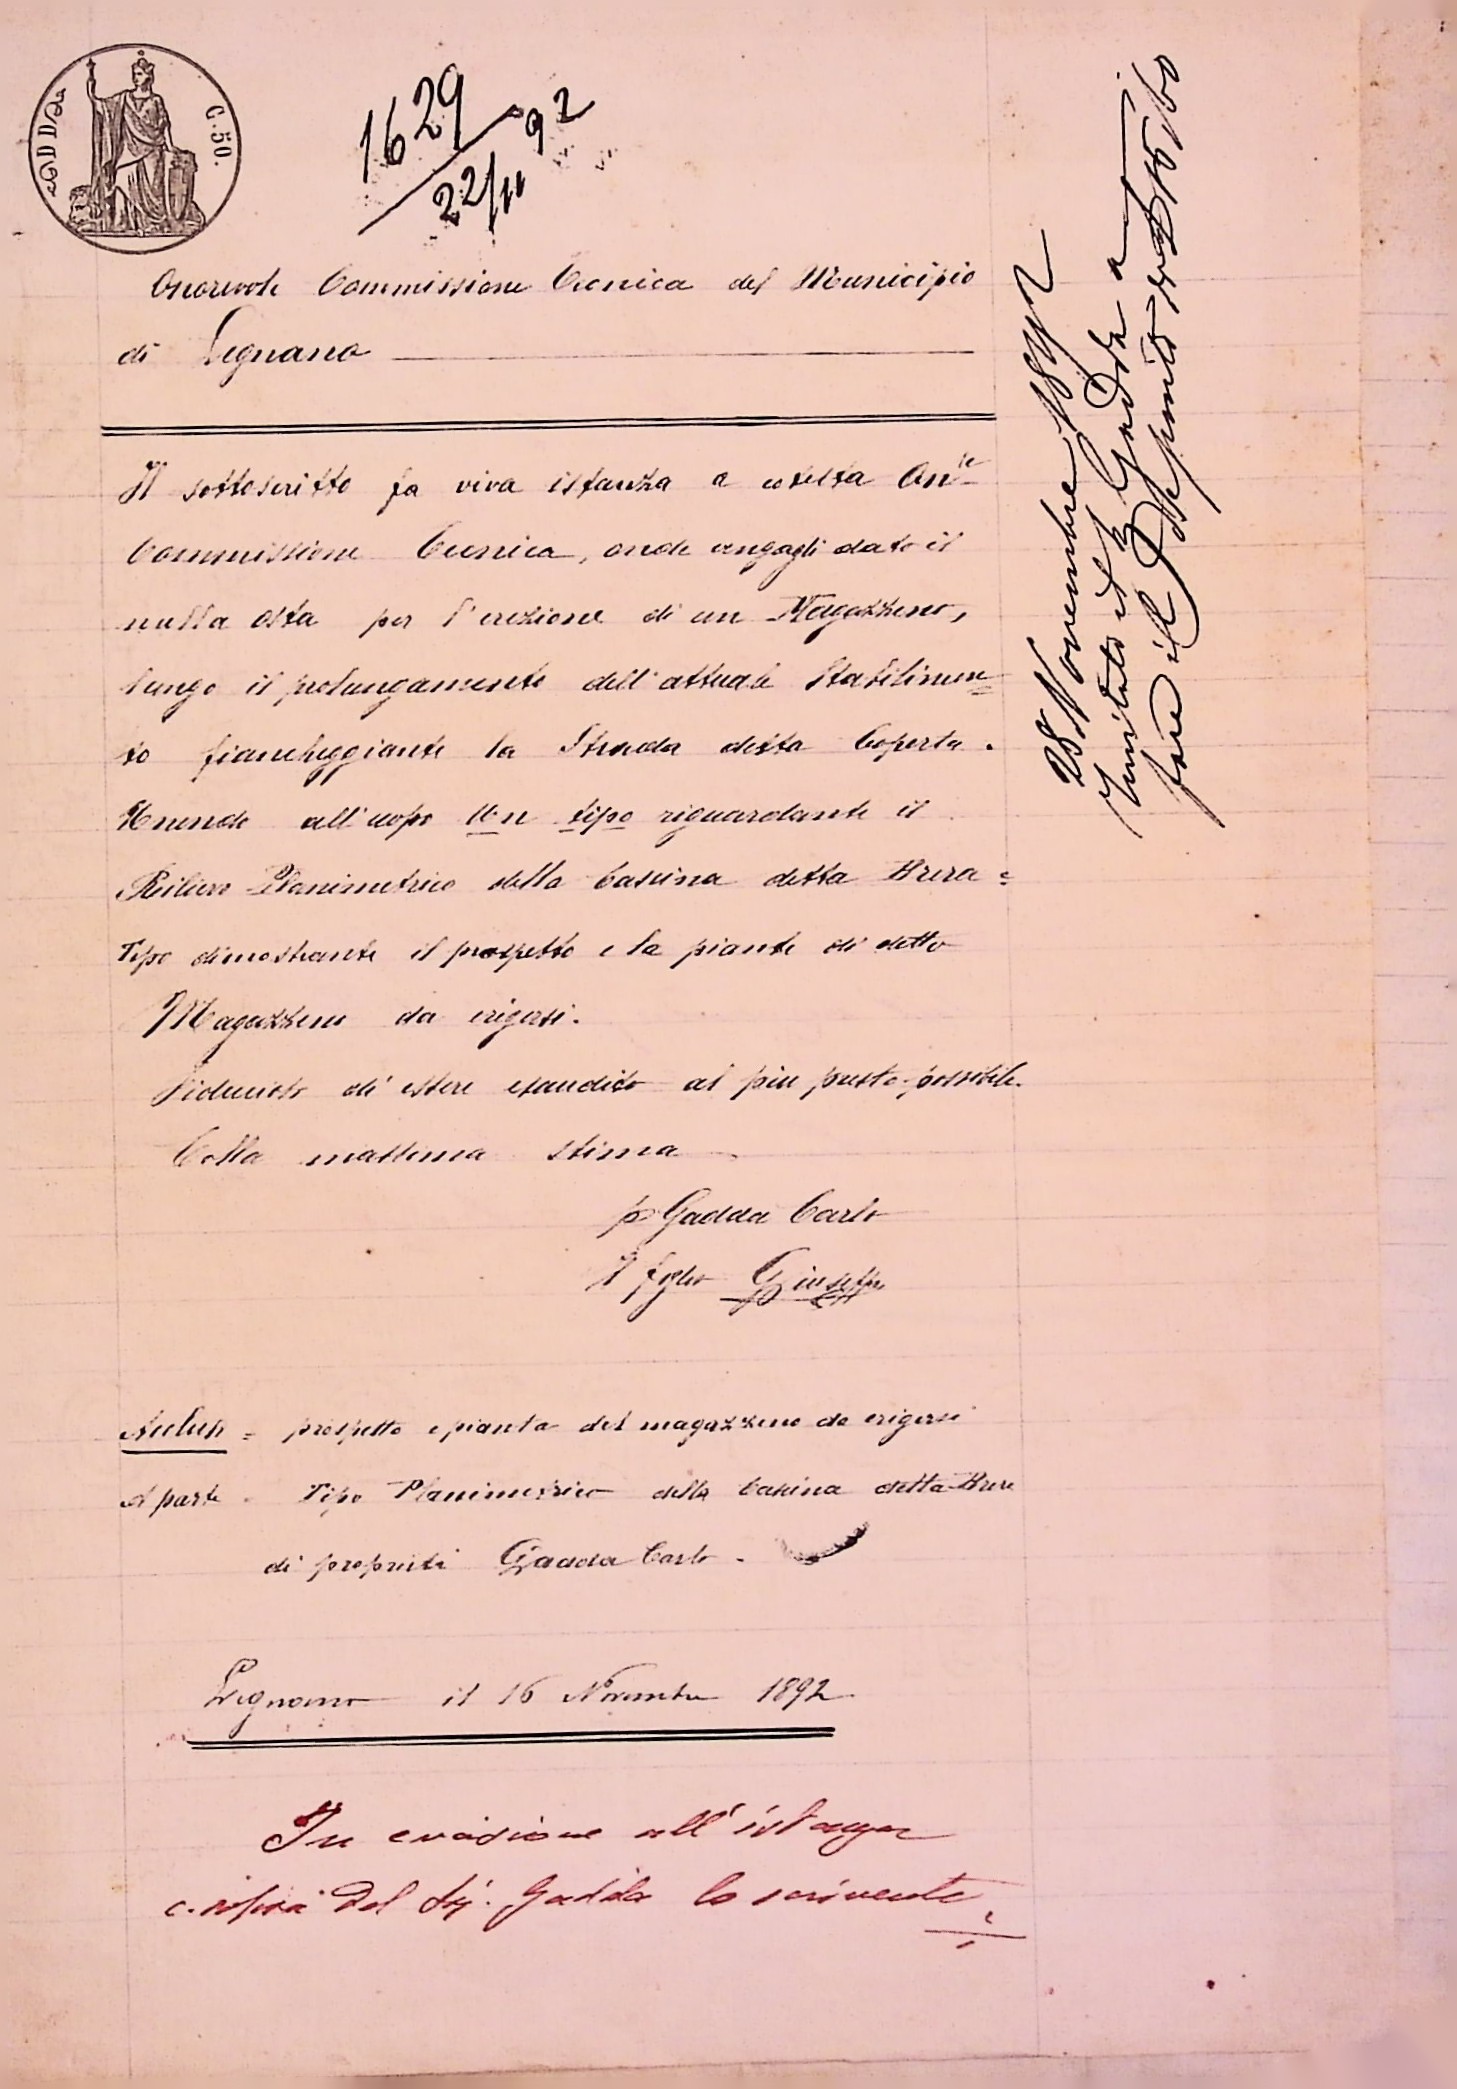 C. 50.
1629
22/11 92
Onorevole Commissione Tecnica del Municipio
di Legnano
Il sottoscritto fa viva istanza a codesta On.le
Commissione Tecnica, onde vengagli dato il
nulla osta per l'erezione di un Magazzeno,
lungo il prolungamento dell'attuale Stabilimen=
to fiancheggiante la Strada detta Coperta.
Unendo all'uopo Un tipo riguardante il
Rilievo Planimetrico della Cascina detta Brera =
Tipo dimostrante il prospetto e la piante di detto
Magazzeno da erigersi.
Fiducioso di essere esaudito al più presto possibile.
Colla massima stima
p Gadda Carlo
Il figlio Giuseppe
= prospetto e pianta del magazzeno da erigersi
A parte = Tipo Planimetrico della Cascina detta Brera
di proprietà Gadda Carlo.
Legnano il 16 Novembre 1892
In evasione all'istanza
del Sig. Gadda lo scrivente
28 Novembre 1892
Invitato il S. Gadda a
fare il Deposito